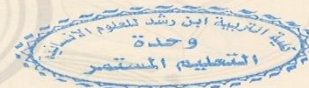 كلية التربية ابن رشد للعلوم الانسانية
وحدة
التعليم المستمر